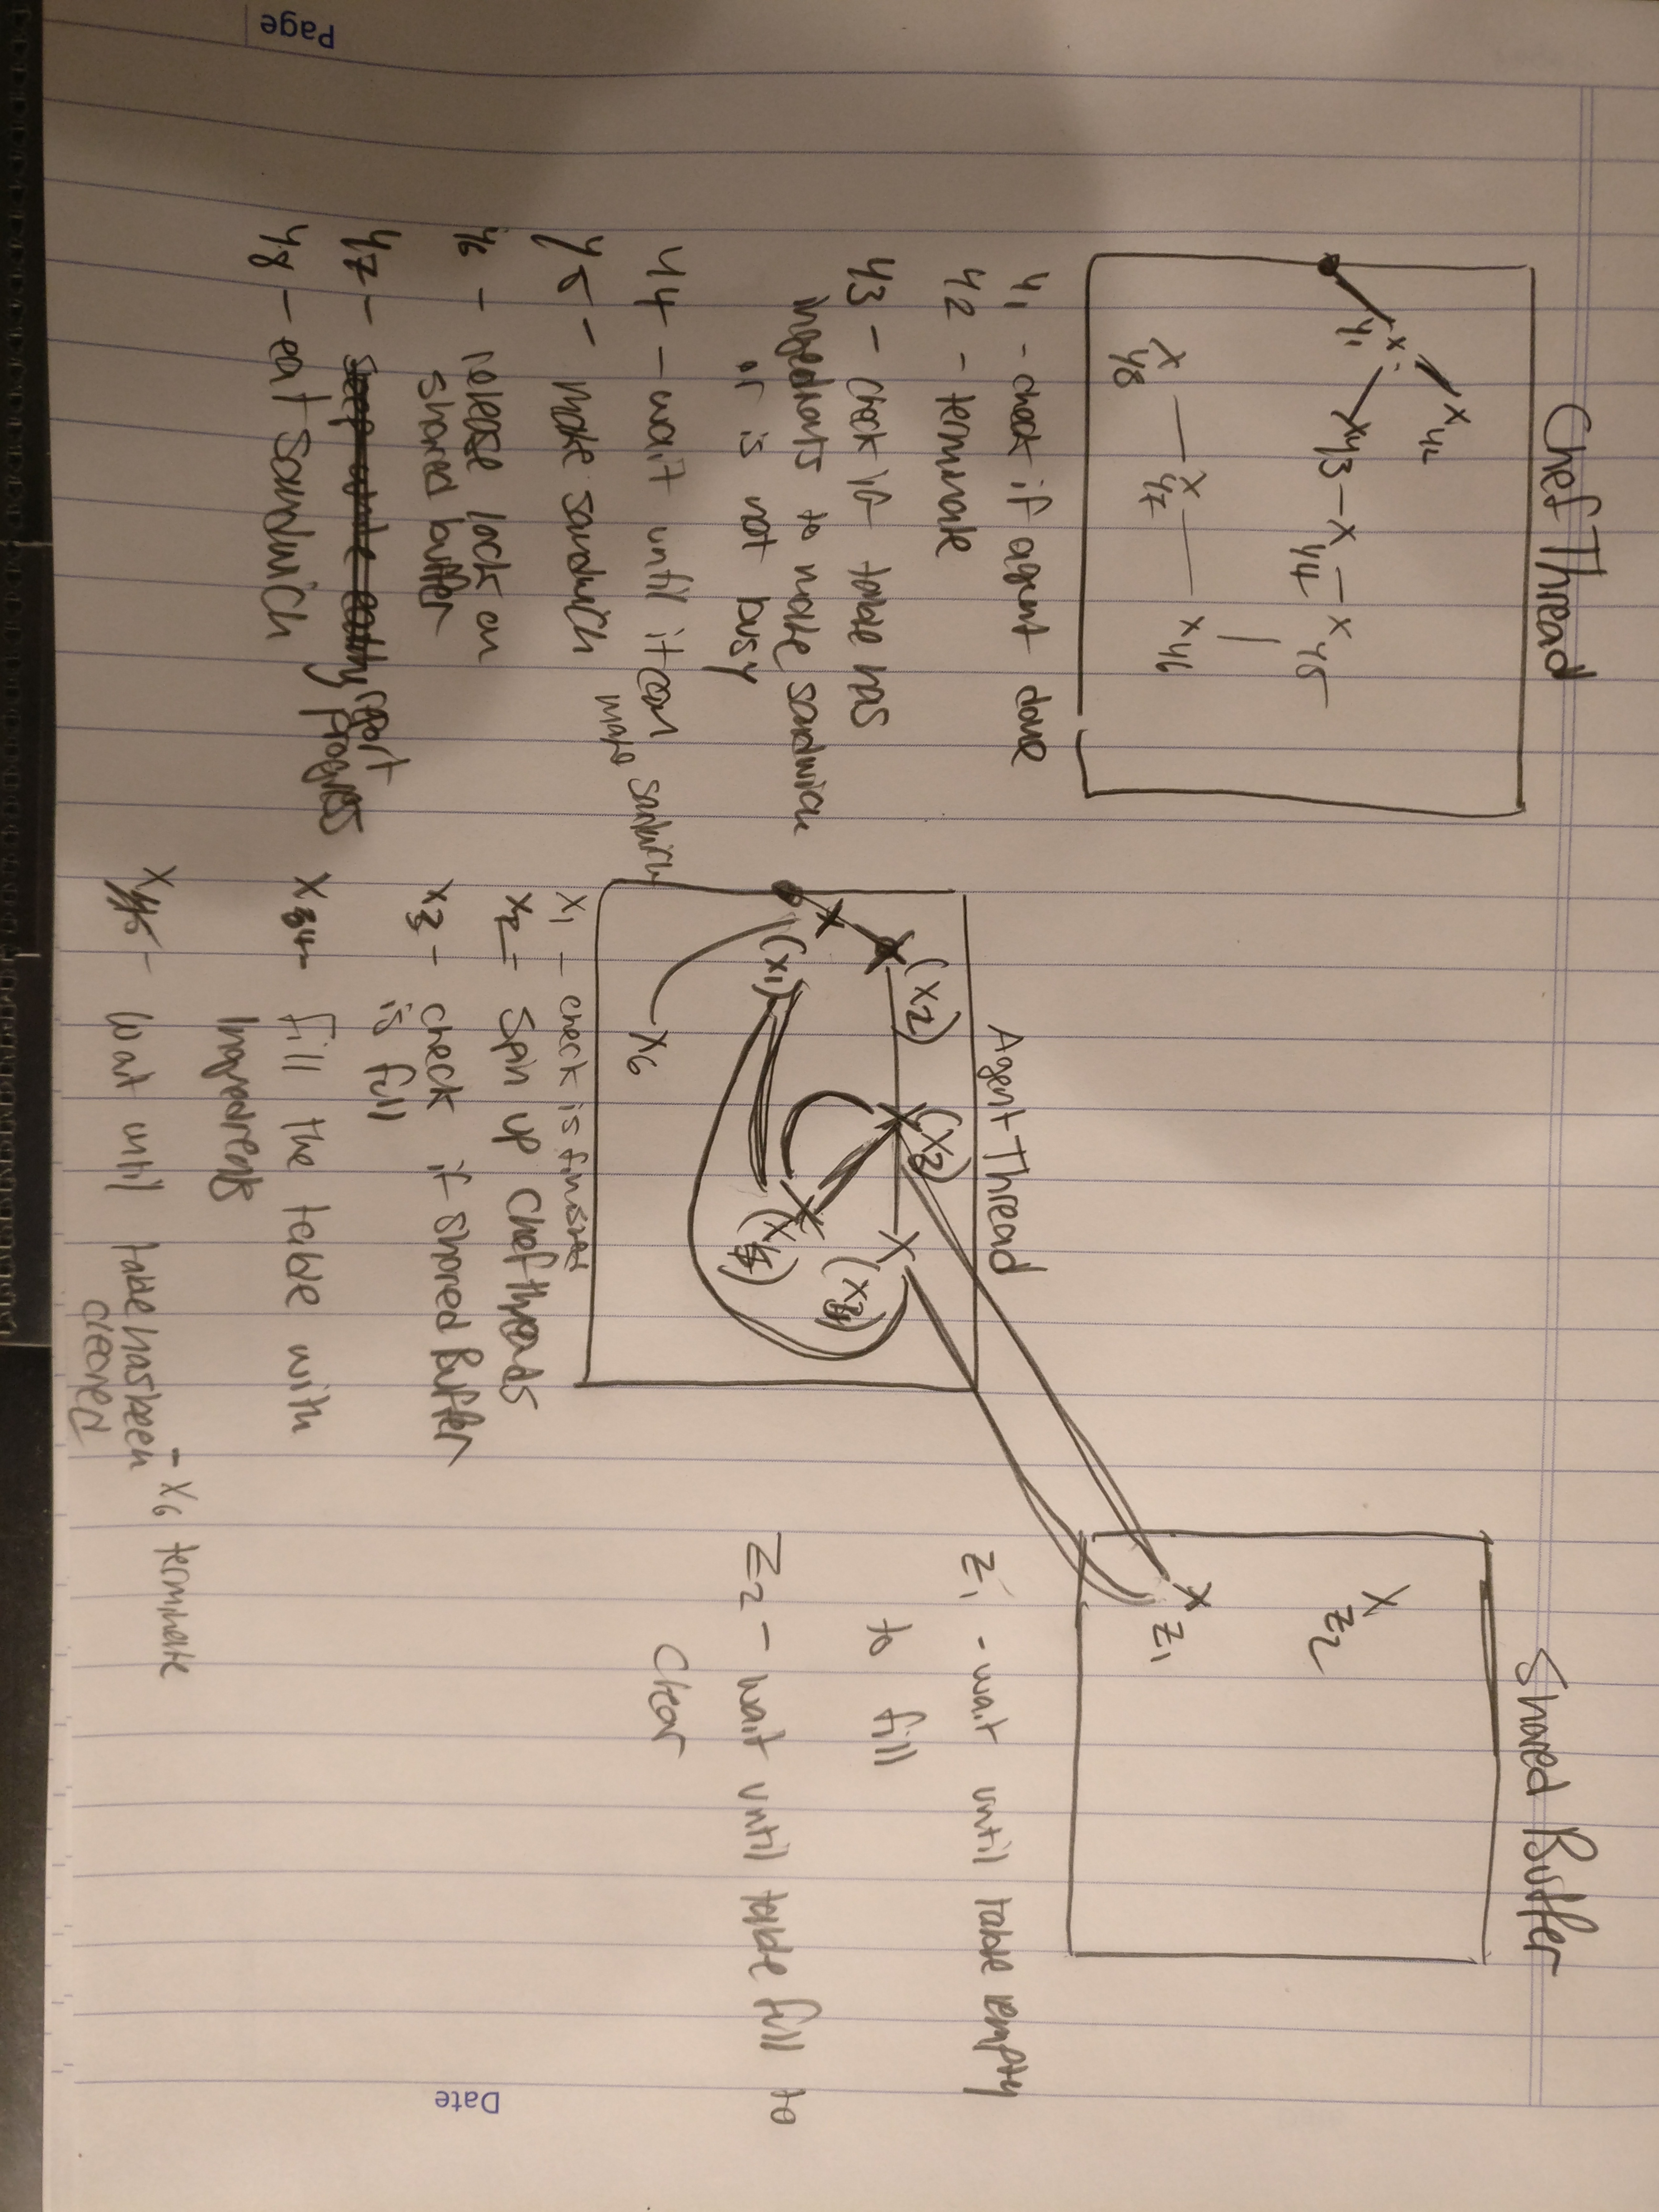 Page
Date
Chef Thread
x
y1
x y2
x y3
x
y4
x
y5
x y6
x
y7
x
y8
y1 - check if agent done
y2 - terminate
y3 - check if table has
ingredients to make sandwich
or is not busy
y4 - wait until it can
make sandwich
y5 - make sandwich
y6 - release lock on
shared buffer
y7 - report
progress
y8 - eat sandwich
Agent Thread
X
(x1)
X
(x2)
X
(x3)
X
(x4)
X
(x5)
x6
x1 - check is finished
x2 - spin up chef threads
x3 - check if shared buffer
is full
x4 - fill the table with
ingredients
x5 - wait until table has been
cleared
- x6 terminate
Shared Buffer
X
Z2
X
Z1
Z1 - wait until table empty
to fill
Z2 - wait until table full to
clear